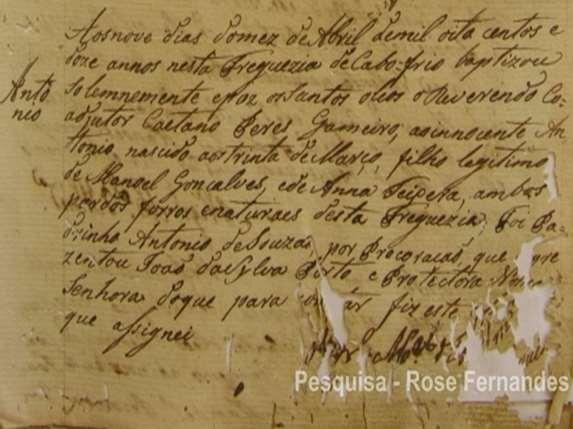 Aos nove dias do mez de Abril de mil oita centos e
doze annos nesta Freguezia de Cabo-frio baptizou
Solemnemente epoz os Santos olios o Reverendo Co-
Anto
nio
adjutor Caetano Peres Gameiro, ao innocente An-
ttonio, nascido aos trinta de Março, filho legitimo
de Manoel Goncalves, ede Anna Teixera, ambos
pardos forros enaturaes desta Freguezia; Foi Pa-
drinho Antonio de Souza, por Procoracaó, que apre
zentou Joaó da Sylva Porto e Protectora Nossa
Senhora do que para constár fiz este
que assignei
Pesquisa - Rose Fernandes